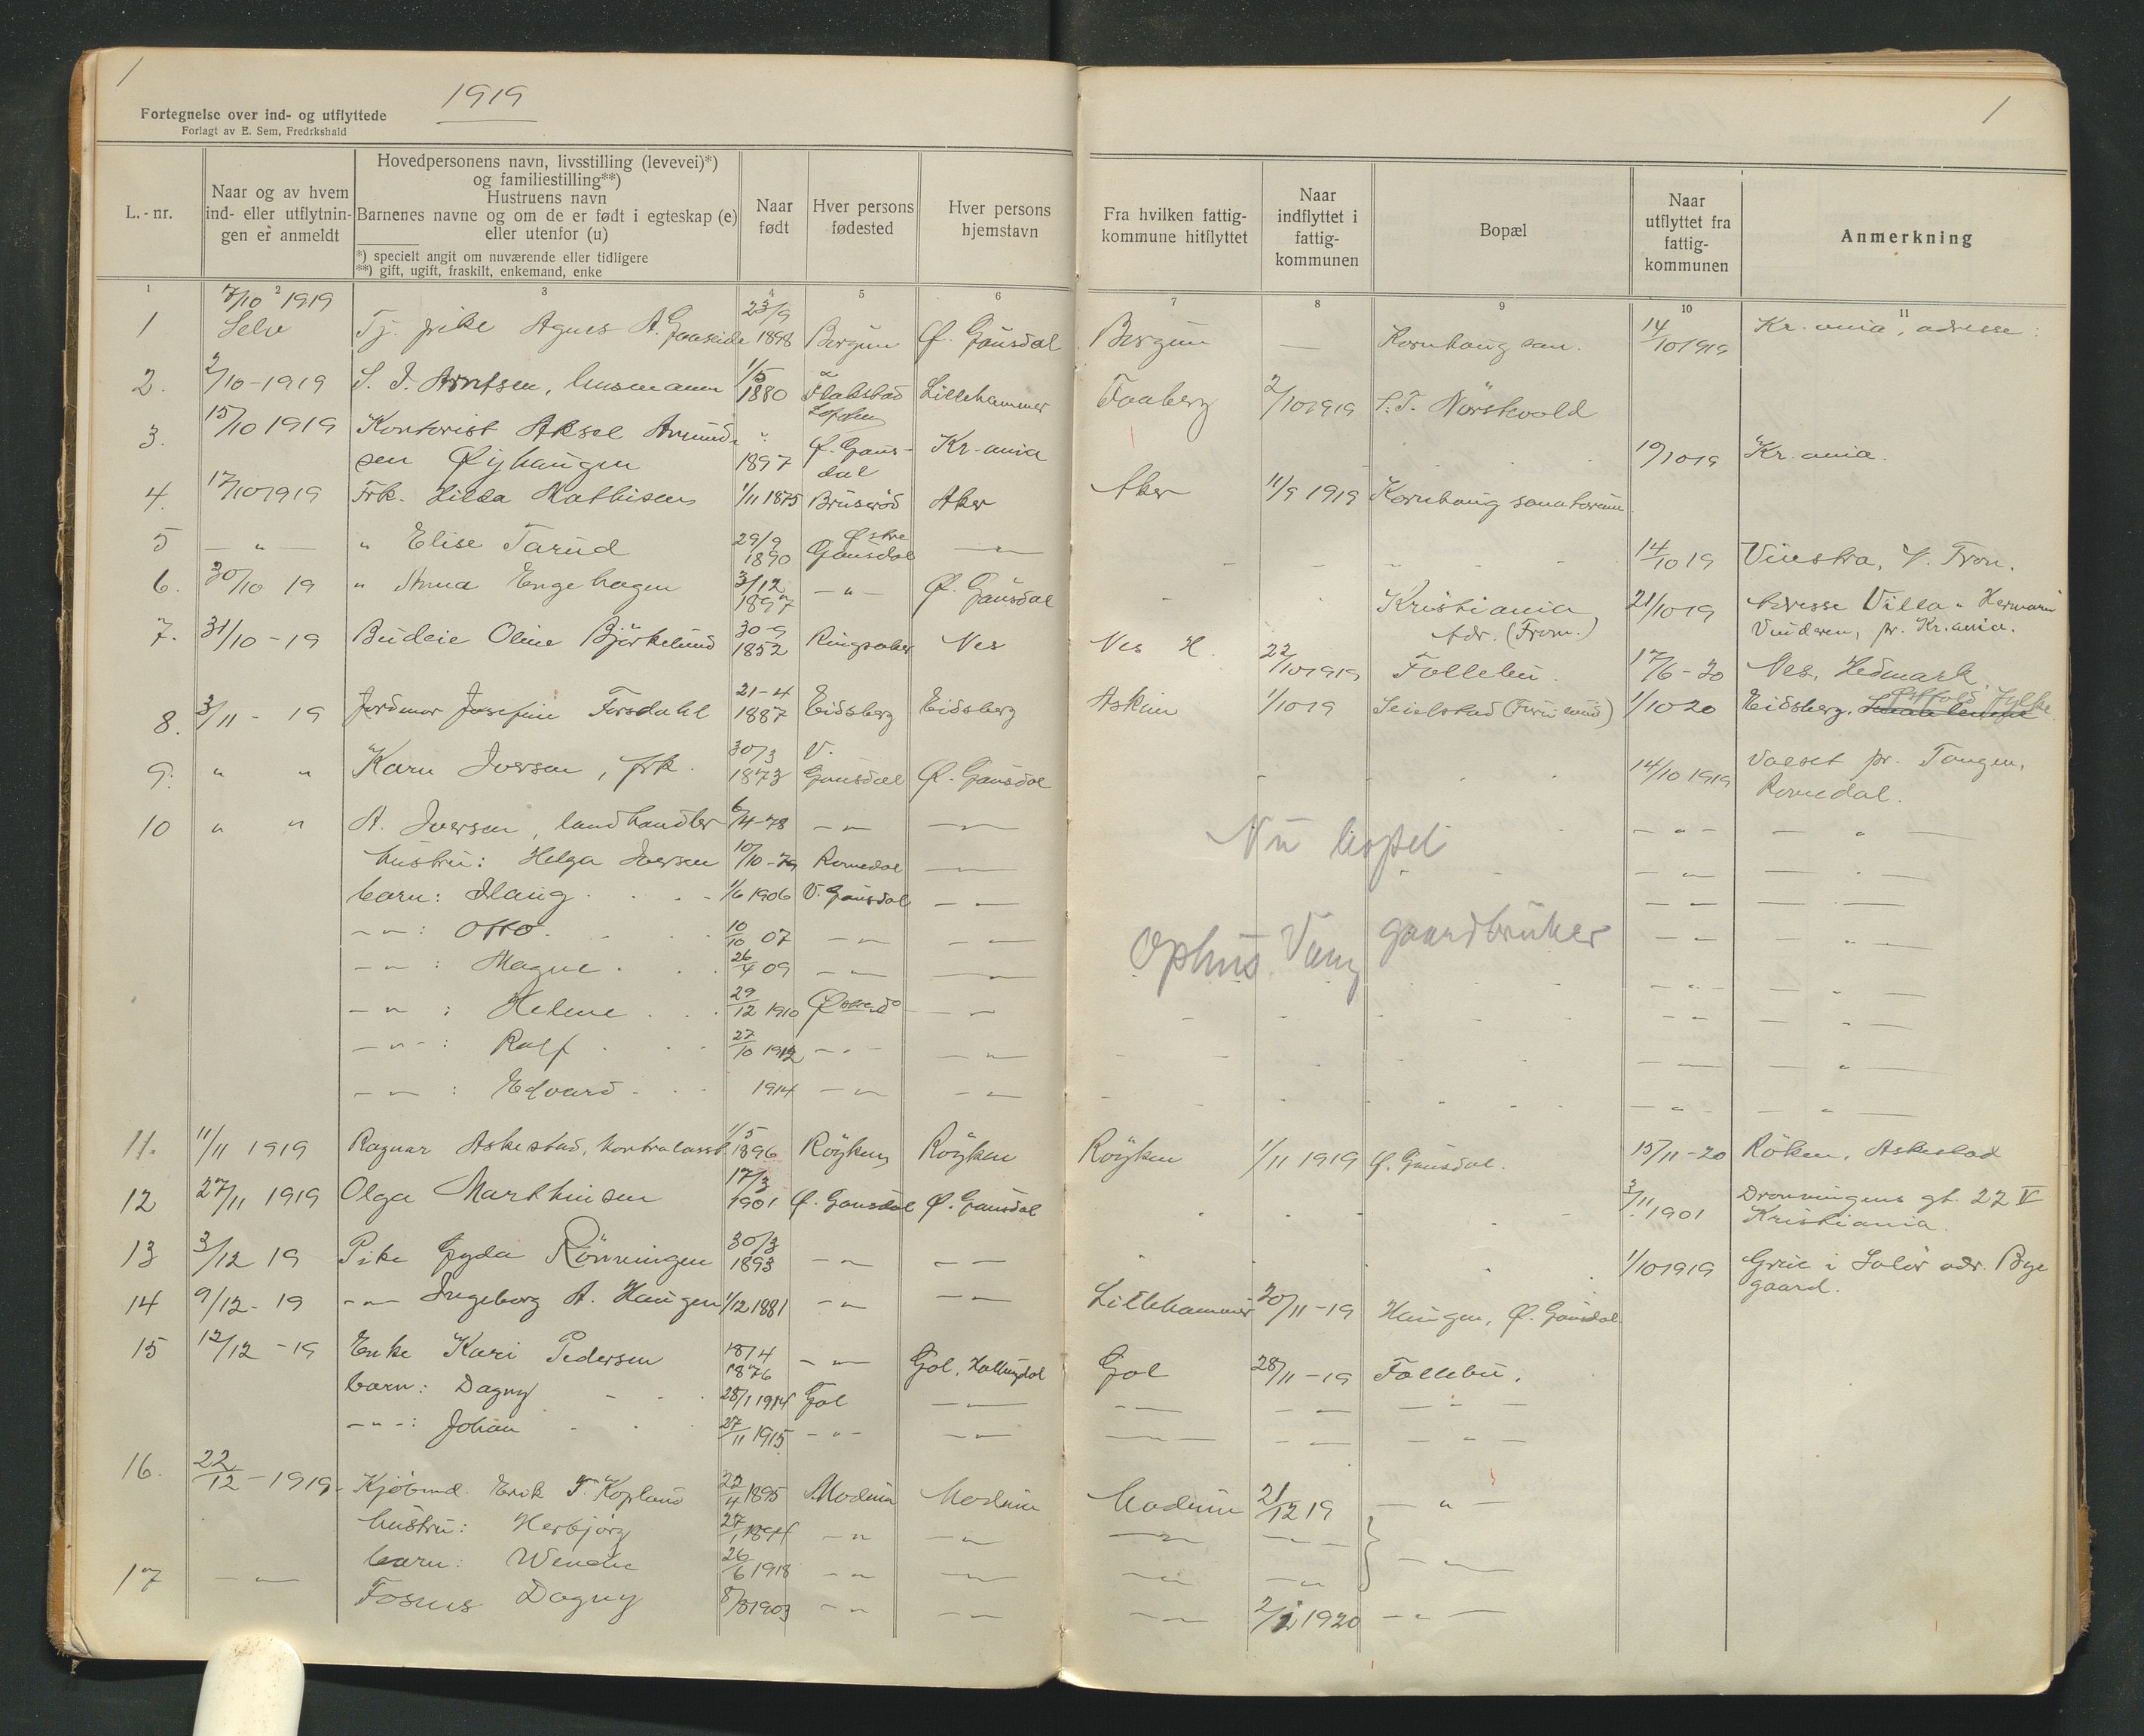 1
1919
1
Fortegnelse over ind- og utflyttede
Forlagt av E. Sem, Fredrkshald
L.-nr.
Naar og av hvem
ind- eller utflytnin-
gen er anmeldt
Hovedpersonens navn, livsstilling (levevei)*)
og familiestilling**)
Hustruens navn
Barnenes navne og om de er født i egteskap (e)
eller utenfor (u)
*) specielt angit om nuværende eller tidligere
**) gift, ugift, fraskilt, enkemand, enke
Naar
født
Hver persons
fødested
Hver persons
hjemstavn
Fra hvilken fattig-
kommune hitflyttet
Naar
indflyttet i
fattig-
kommunen
Bopæl
Naar
utflyttet fra
fattig-
kommunen
Anmerkning
1 2 3 4 5 6 7 8 9 10 11
7/10 1919 23/9
1 Selv Tj. pike Agnes A. 1898 Ø. Gausdal — Kornhaug san. 14/10 1919 Kr.ania, adresse:
2. 2/10-1919 1/5 1880 Flakstad Lillehammer Faaberg 2/10 1919
Lofoten
3. 15/10 1919 Kontorist Aksel Amund- " Ø. Gaus- Kr-ania 19/10 19 Kr.ania.
sen Øihaugen 1897 dal
4. 17/10 1919 Frk. Hilda Mathisen 1/11 1875 Aker Aker 11/9 1919 Kornhaug sanatorium
5 — " — " Elise Tarud 29/9 1890 Østre Gausdal — " — 14/10 19 Vinstra, N. Fron.
6. 30/10 19 " Anna Engehagen 3/12 1897 — " — Ø. Gausdal Kristiania 21/10 19 Adresse Villa "
adr. (From.) Vinderen, pr. Kr.ania.
7. 31/10-19 Budeie Oline Björkelund 30-9 1852 Ringsaker Nes Nes H. 22/10 1919 Follebu. 17/6-20 Nes, Hedmark
8. 3/11 - 19 Josefine Forsdahl 21-4 1887 Eidsberg Eidsberg Askim 1/10 19 1/10 20 Eidsberg, Østfold fylke
9. " " Karn Iversen, frk. 30/3 1873 V. Gausdal Ø. Gausdal 14/10 1919 pr. Tangen,
Romedal.
10 " " A. Iversen, landhandler 6/4-78 — " — — " — — " — — " —
Nu bopel
hustru: Helga Iversen 10/10-79 Romedal — " — — " — — " —
barn: Haug 1/6 1906 V. Gausdal — " — — " — — " —
— " — : Otto. 10/10 07 — " — — " — — " — — " —
Ophus Vang gaardbruker
— " — : Magne. 26/4 09 — " — — " — — " — — " —
— " — : Helene 29/12 1910 — " — — " — — " —
— " — : Ralf 27/10 1912 — " — — " — — " — — " —
— " — : Edvard 1914 — " — — " — — " — — " —
11. 11/11 1919 Ragnar Askestad, kontrolasst. 1/5 1896 Röyken Röyken Röyken 1/11 1919 Ø. Gausdal. 15/11-20 Röken, Askestad
12 27/11 1919 Olga Marthinsen 17/3 1901 Ø. Gausdal Ø. Gausdal 3/11 1901 Dronningens gt. 22 V
Kristiania.
13 3/12 19 Pike Gyda Rönningen 30/3 1893 — " — — " — 1/10 1919 Grue i Solör adr. Bye
gaard.
14 9/12-19 — " — Ingeborg A. Haugen 1/12 1881 — " — — " — Lillehammer 20/11-19 Haugen, Ø. Gausdal
15 12/12-19 Enke Kari Pedersen 18/4 1876 — " — Gol, Hallingdal Gol 28/11-19 Follebu.
barn: Dagny 28/1 1914 Gol — " — — " — — " — — " —
— " — : Johan 27/11 1915 — " — — " — — " — — " — — " —
16. 22/12-1919 Kjöbmd. Erik T. Kopland 22/4 1895 Modum Modum Modum 21/12 19 — " —
hustru: Herbjörg 27/1 1894 — " — — " — — " — — " —
barn: Wenche 26/6 1918 — " — — " — — " — — " — — " —
17 — " — Fosnes Dagny 8/8 1903 — " — — " — — " — 2/1 1920 — " —